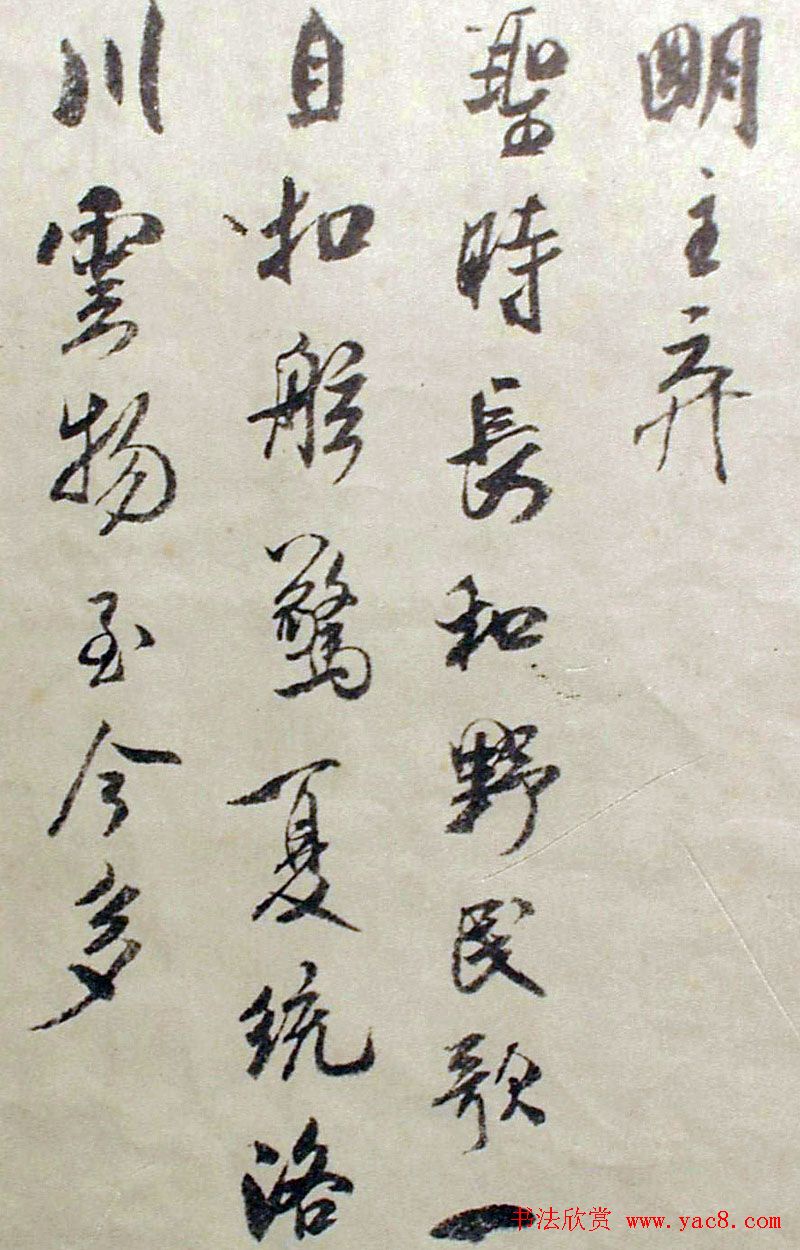 明主弃
聖時長和野民歌一
自扣舷驚夏統洛
川雲物至今多
书法欣赏 www.yac8.com